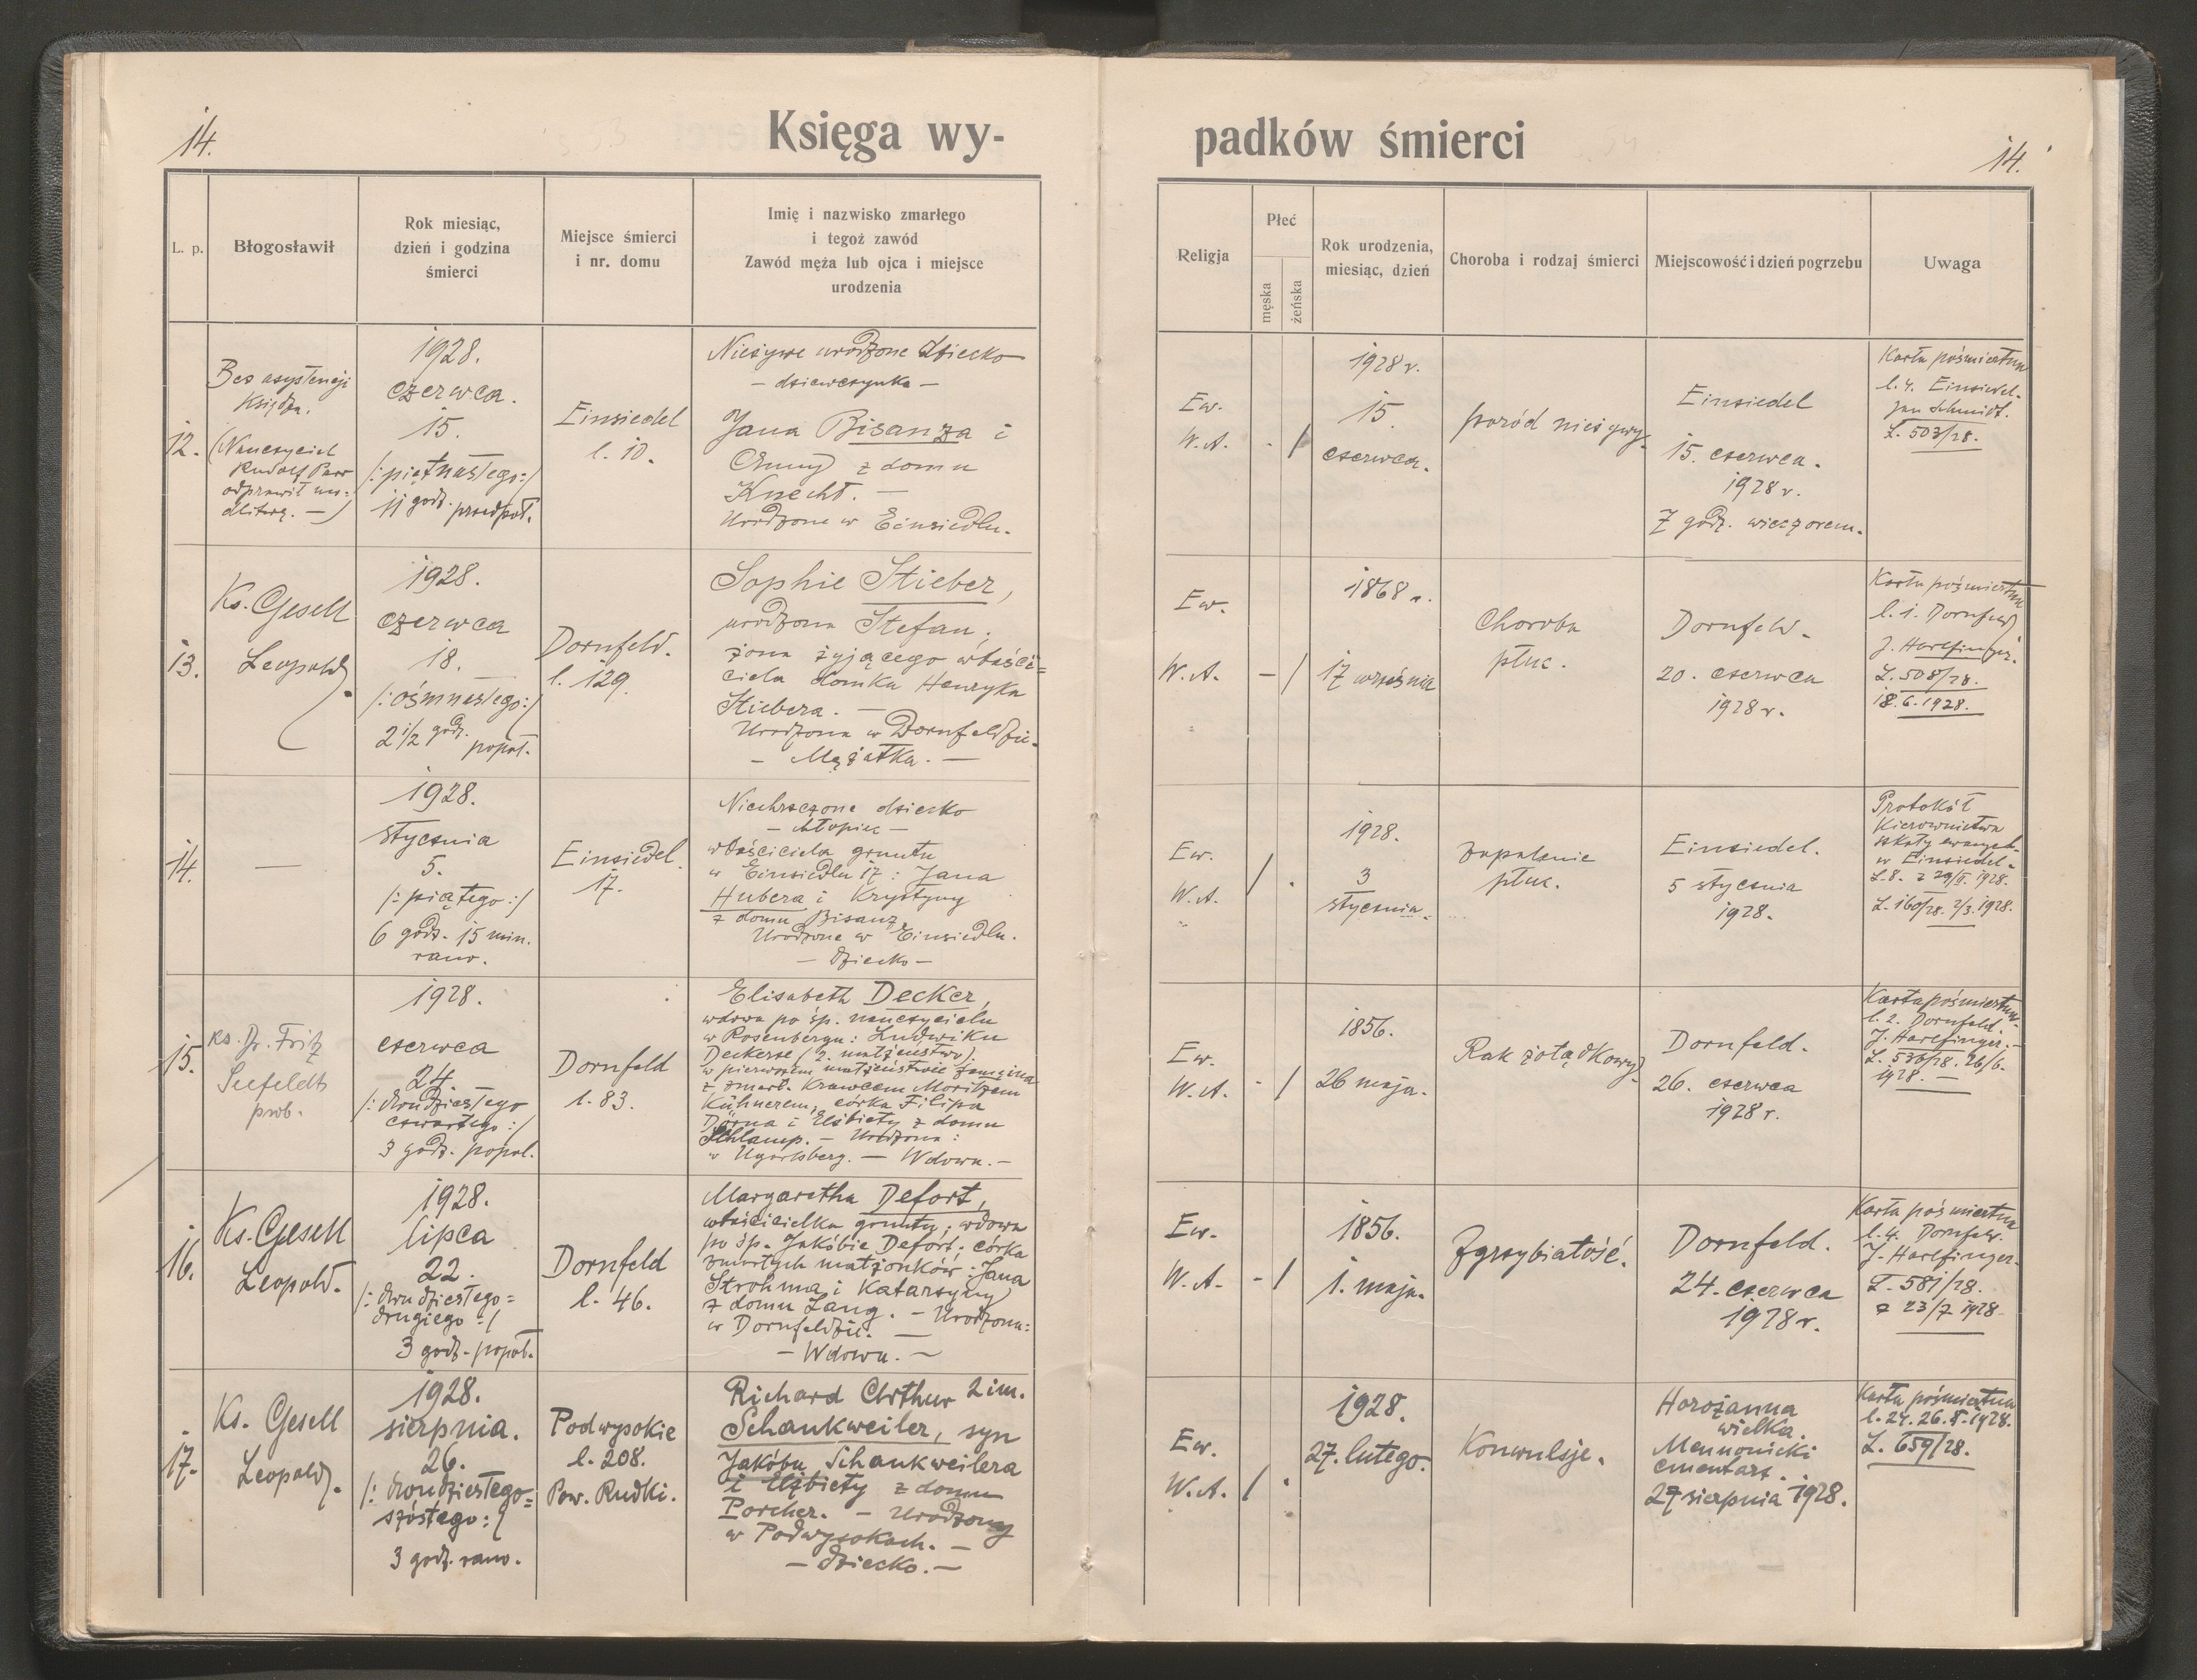 14.
Księga wy-
L. p.
Błogosławił
Rok miesiąc,
dzień i godzina
śmierci
Miejsce śmierci
i nr. domu
Imię i nazwisko zmarłego
i tegoż zawód
Zawód męża lub ojca i miejsce
urodzenia
12.
Bez asystencji
Księdza.
(Nauczyciel
Rudolf
odprawił mo=
dlitwę. —)
1928.
czerwca.
15.
/:piętnastego:/
11 godz. przedpoł.
Einsiedel
l. 10.
Nieżywe urodzone dziecko
— dziewczynka —
Jana Bisanza i
Anny z domu
Knecht. —
Urodzone w Einsiedlu.
13.
Ks. Gesell
Leopold.
1928.
czerwca
18.
/:ośmnastego:/
2 1/2 godz.
popoł.
Dornfeld.
l. 129.
Sophie Stieber,
urodzona Stefan;
żona żyjącego właści=
ciela domku Henryka
Stiebera. —
Urodzona w Dornfeldzie.
— Mężatka. —
14.
—
1928.
stycznia
5.
/:piątego:/
6 godz. 15 min.
rano.
Einsiedel.
17.
Niechrzczone dziecko
— chłopiec —
właściciela gruntu
w Einsiedlu 17: Jana
Hubera i Krystyny
z domu Bisanz.
Urodzone w Einsiedlu.
— Dziecko —
15.
Ks. Dr. Fritz
Seefeldt
prob.
1928.
czerwca
24.
/:dwudziestego
czwartego:/
3 godz. popoł.
Dornfeld
l. 83.
Elisabeth Decker,
wdowa po śp. nauczycielu
w Rosenbergu: Ludwiku
Deckerze (2. małżeństwo).
w pierwszem małżeństwie zamężna
z zmarł. Krawcem Moritzem
Kühnerem, córka Filipa
Dörna i Elżbiety z domu
Schlamp. — Urodzona:
w Ugartsberg. — Wdowa. —
16.
Ks. Gesell
Leopold.
1928.
lipca
22.
/:dwudziestego=
drugiego:/
3 godz. popoł.
Dornfeld
l. 46.
Margaretha Defort,
właścicielka gruntu; wdowa
po śp. Jakóbie Defort; córka
zmarłych małżonków: Jana
Strohma i Katarzyny
z domu Lang. — Urodzona:
w Dornfeldzie. —
— Wdowa. —
17.
Ks. Gesell
Leopold.
1928.
sierpnia.
26.
/:dwudziestego=
szóstego:/
3 godz. rano.
Podwysokie
l. 208.
Pow. Rudki.
Richard Arthur 2 im.
Schankweiler, syn
Jakóba Schankweilera
i Elżbiety z domu
Porcher. — Urodzony
w Podwysokach. —
— dziecko. —
padków śmierci
14.
Religja
Płeć
męska
żeńska
Rok urodzenia,
miesiąc, dzień
Choroba i rodzaj śmierci
Miejscowość i dzień pogrzebu
Uwaga
Ew.
W.A.
- /
1928 r.
15.
czerwca.
poród nieżywy.
Einsiedel
15. czerwca.
1928 r.
7 godz. wieczorem.
Karta pośmiertna
l. 4. Einsiedel.
Jan Schmidt.
L. 503/28.
Ew.
W.A.
- /
1868 r.
17 września
Choroba
płuc.
Dornfeld.
20. czerwca
1928 r.
Karta pośmiertna
l. 1. Dornfeld
J. Harlfinger.
L. 508/28.
18.6.1928.
Ew.
W.A.
/ .
1928.
3
stycznia.
Zapalenie
płuc.
Einsiedel.
5 stycznia
1928.
Protokół
Kierownictwa
szkoły ewangel.
w Einsiedel.
L. 8. z 29/II. 1928.
L. 160/28. 2/3. 1928.
Ew.
W.A.
- /
1856.
26 maja.
Rak żołądkowy.
Dornfeld.
26. czerwca
1928 r.
Karta pośmiertna.
l. 2. Dornfeld.
J. Harlfinger. —
L. 536/28. 26/6.
1928. —
Ew.
W.A.
- /
1856.
1. maja.
Zgrzybiałość.
Dornfeld.
24. czerwca
1928 r.
Karta pośmiertna
l. 4. Dornfeld.
J. Harlfinger.
L. 581/28.
z 23/7 1928.
Ew.
W.A.
/ .
1928.
27. lutego.
Konwulsje.
Horożanna
wielka.
Mennonicki
cmentarz.
27 sierpnia 1928.
Karta pośmiertna
l. 24. 26.8.1928.
L. 659/28.